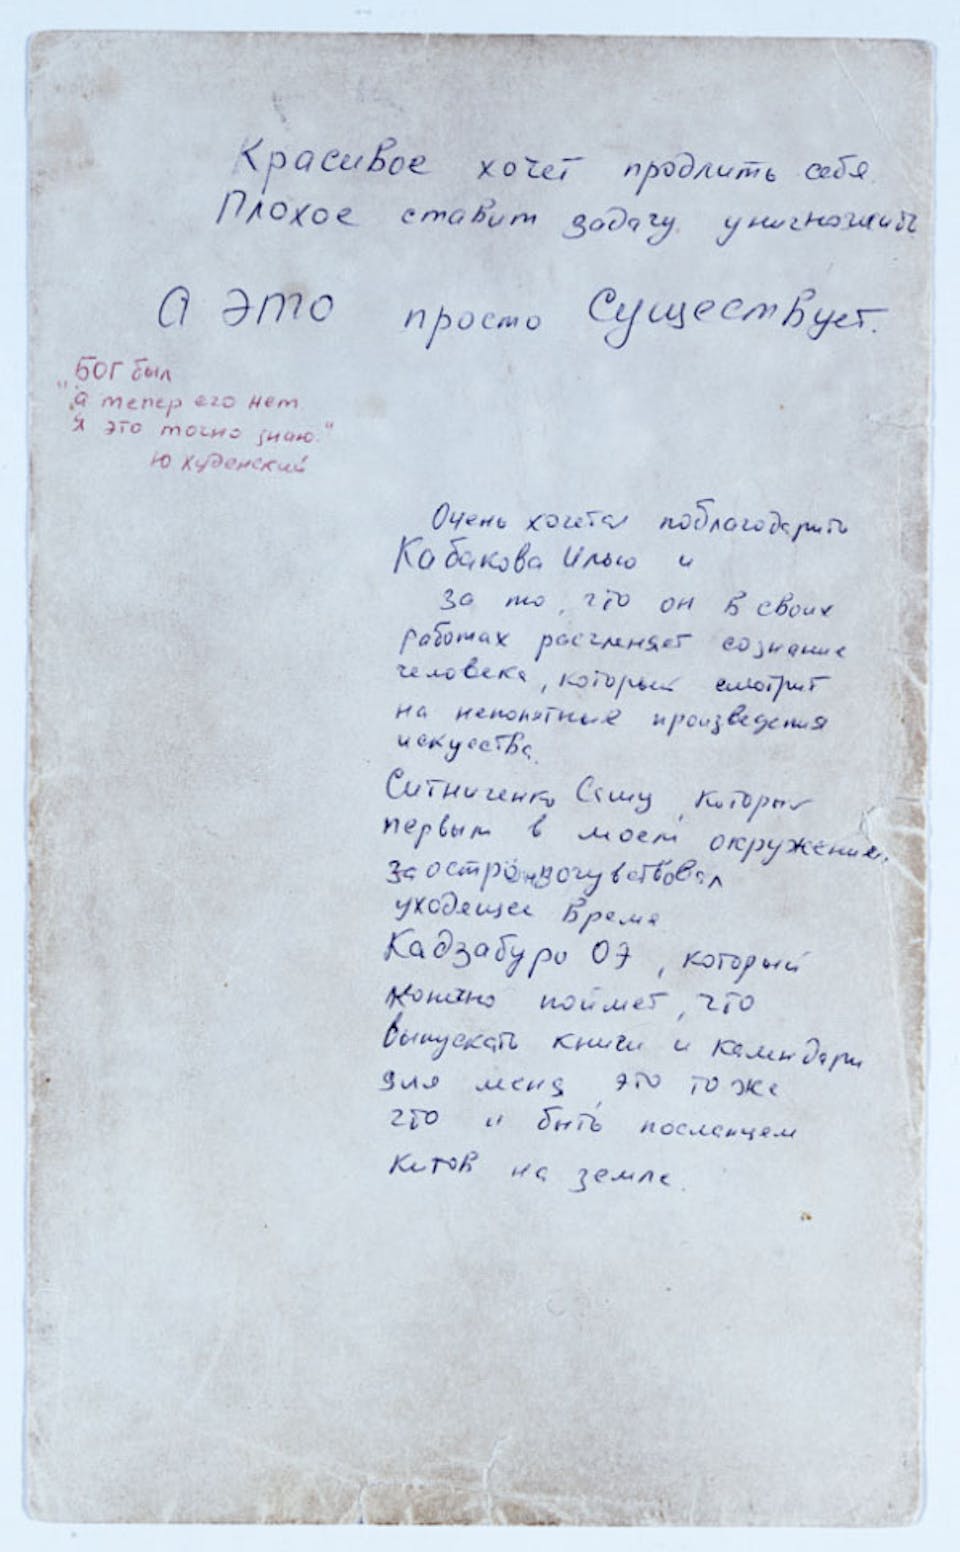 Красивое хочет продлить себя.
Плохое ставит задачу уничтожить
А это просто Существует.
"БОГ был
а тепер его нет
Я это точно знаю."
Ю Худенский
Очень хочется поблагодарить
Кабакова Илью и
за то, что он в своих
работах расчленяет сознание
человека, который смотрит
на непонятные произведения
искусства.
Ситниченко Сашу, который
первым в моем окружении
заостро
уходящее время
Кадзабуро ОЭ, который
конечно поймет, что
выпускать книги и календари
для меня, это тоже
что и быть посланцем
китов на земле.